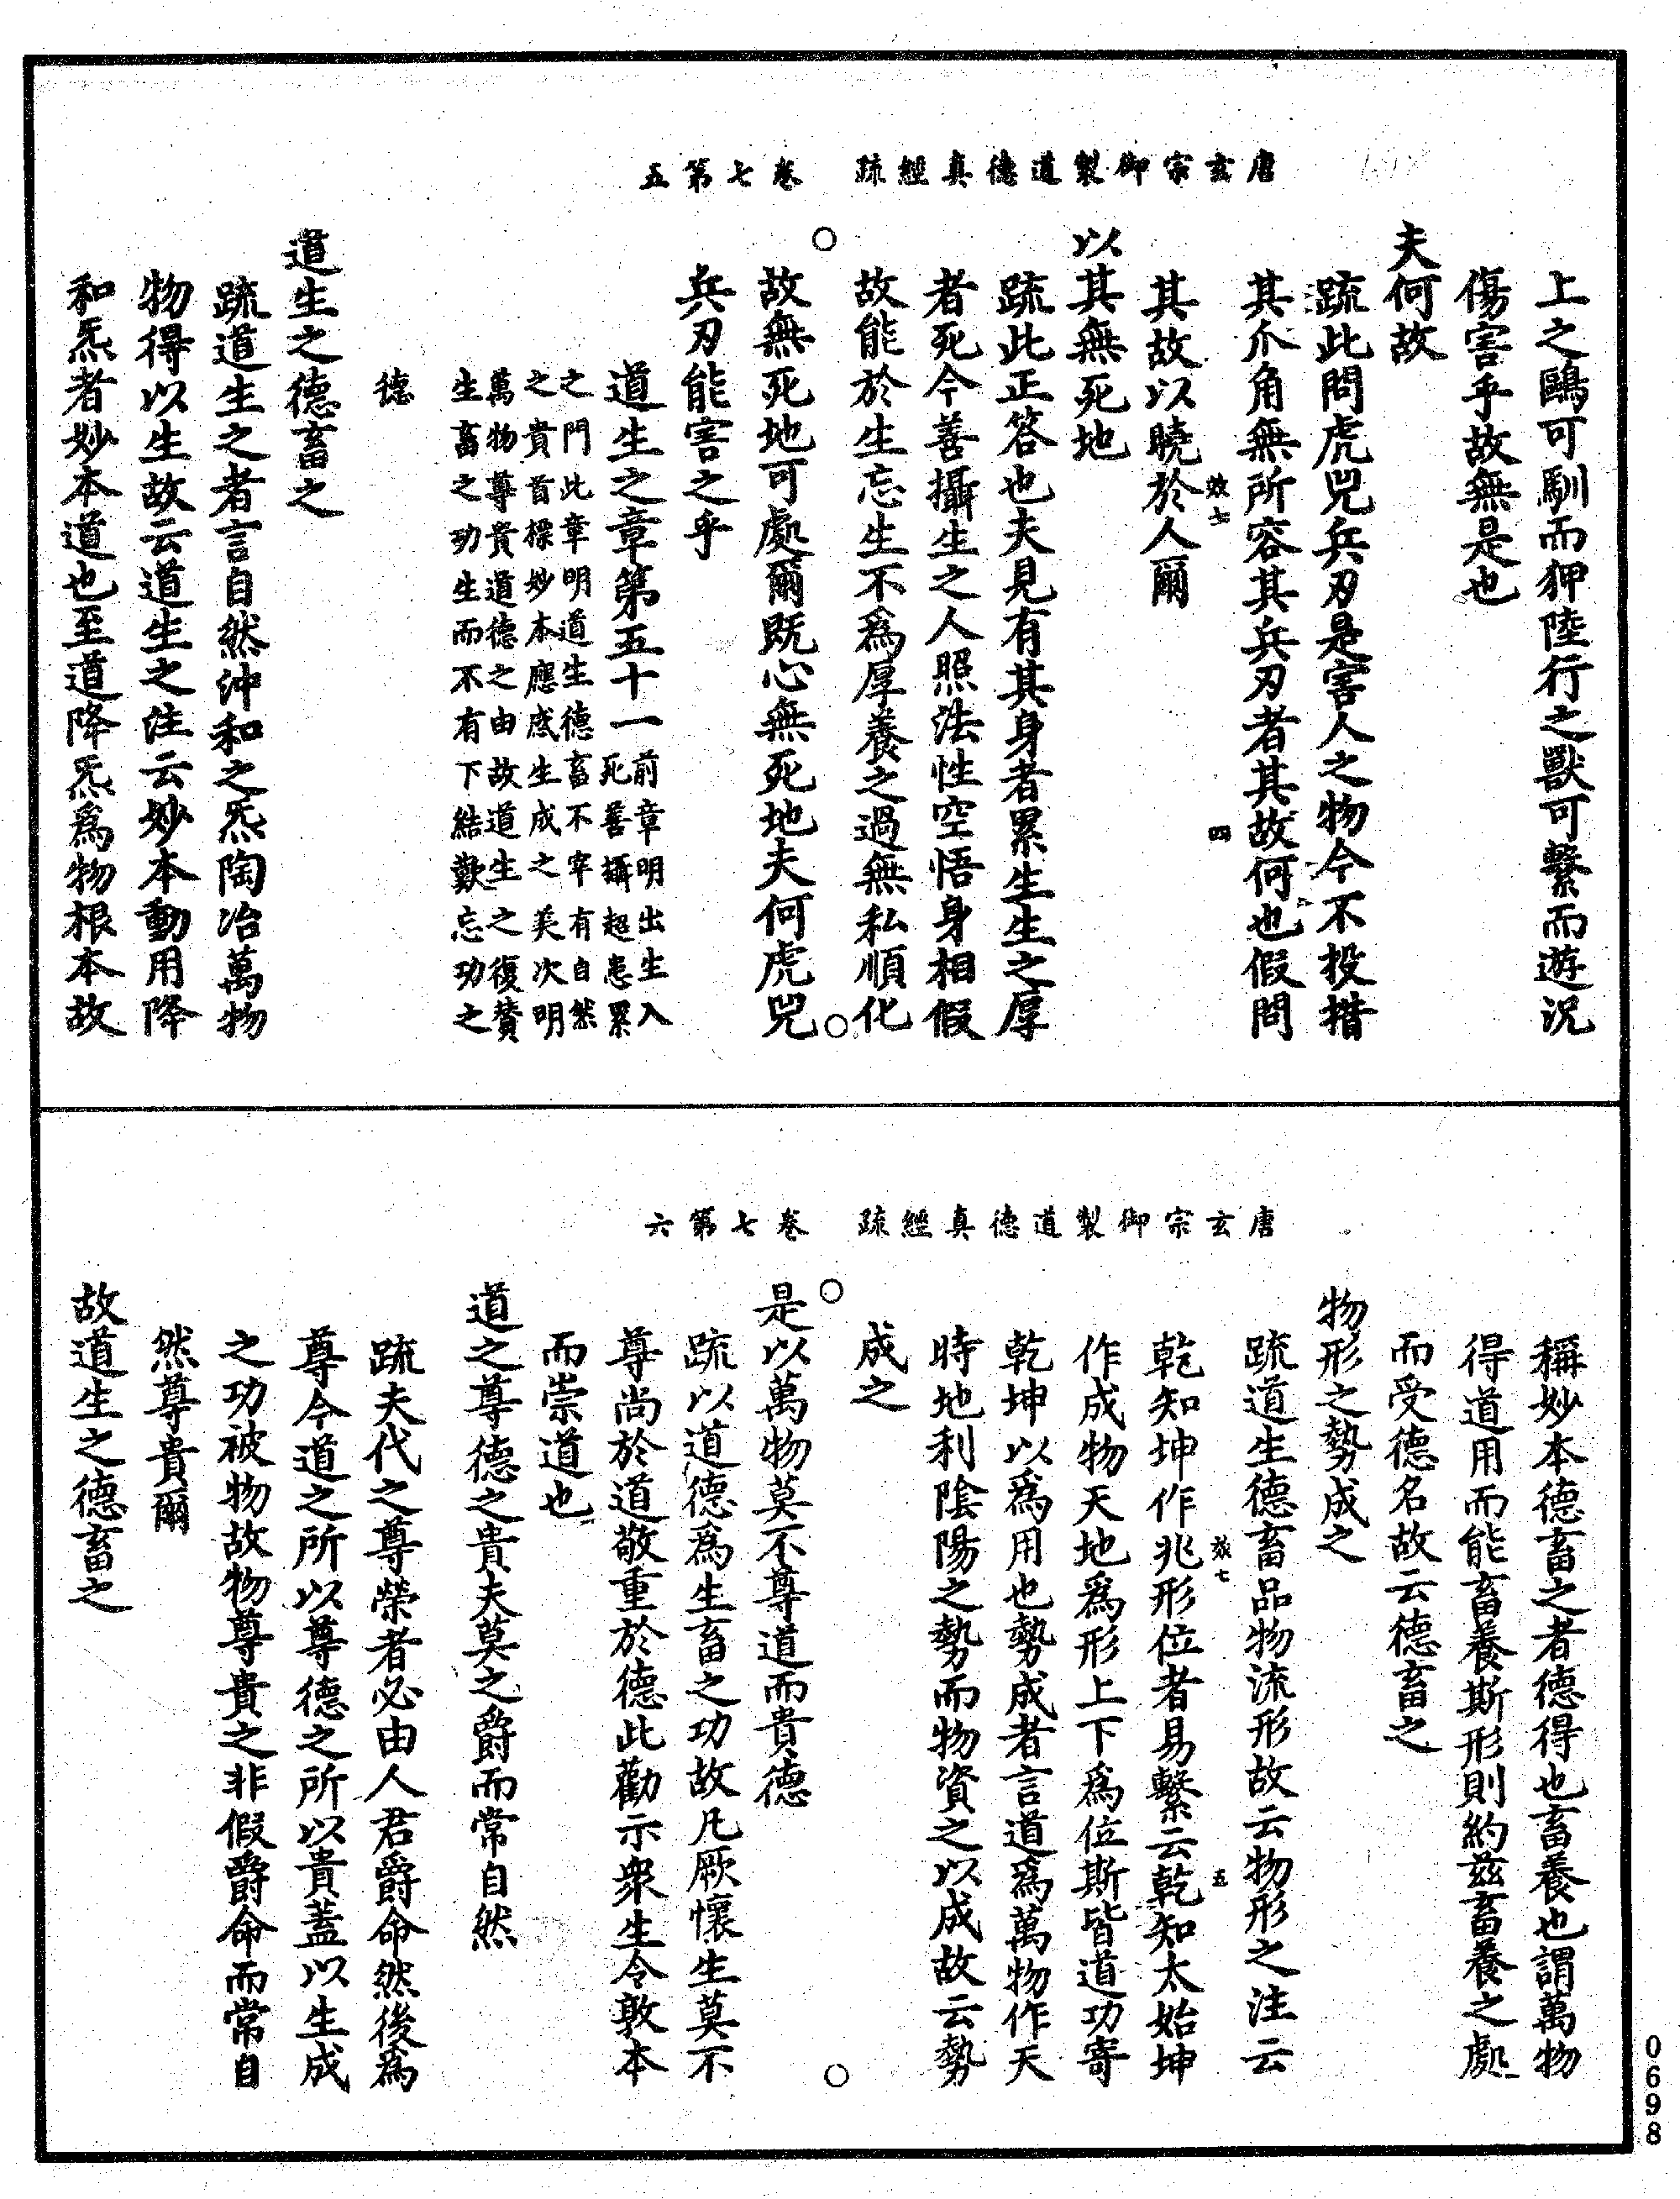 唐玄宗御製道德真經疏　卷七第五
上之鷗可馴而狎陸行之獸可繫而遊況
傷害乎故無是也
夫何故
疏此問虎兕兵刃是害人之物今不投措
其爪角無所容其兵刃者其故何也假問
效七　四
其故以曉於人爾
以其無死地
疏此正答也夫見有其身者累生生之厚
者死今善攝生之人照法性空悟身相假
故能於生忘生不為厚養之過無私順化
故無死地可處爾既心無死地夫何虎兕
兵刃能害之乎
道生之章第五十一前章明出生入
死善攝超患累
之門此章明道生德畜不宰有自然
之貴首標妙本應感生成之美次明
萬物尊貴道德之由故道生之復贊
生畜之功生而不有下結歎忘功之
德
道生之德畜之
疏道生之者言自然沖和之炁陶冶萬物
物得以生故云道生之注云妙本動用降
和炁者妙本道也至道降炁為物根本故
唐玄宗御製道德真經疏　卷七第六
稱妙本德畜之者德得也畜養也謂萬物
得道用而能畜養斯形則約茲畜養之處
而受德名故云德畜之
物形之勢成之
疏道生德畜品物流形故云物形之注云
效七　五
乾知坤作兆形位者易繫云乾知太始坤
作成物天地為形上下為位斯皆道功寄
乾坤以為用也勢成者言道為萬物作天
時地利陰陽之勢而物資之以成故云勢
成之
是以萬物莫不尊道而貴德
疏以道德為生畜之功故凡厥懷生莫不
尊尚於道敬重於德此勸示衆生令敦本
而崇道也
道之尊德之貴夫莫之爵而常自然
疏夫代之尊榮者必由人君爵命然後為
尊今道之所以尊德之所以貴蓋以生成
之功被物故物尊貴之非假爵命而常自
然尊貴爾
故道生之德畜之
0698